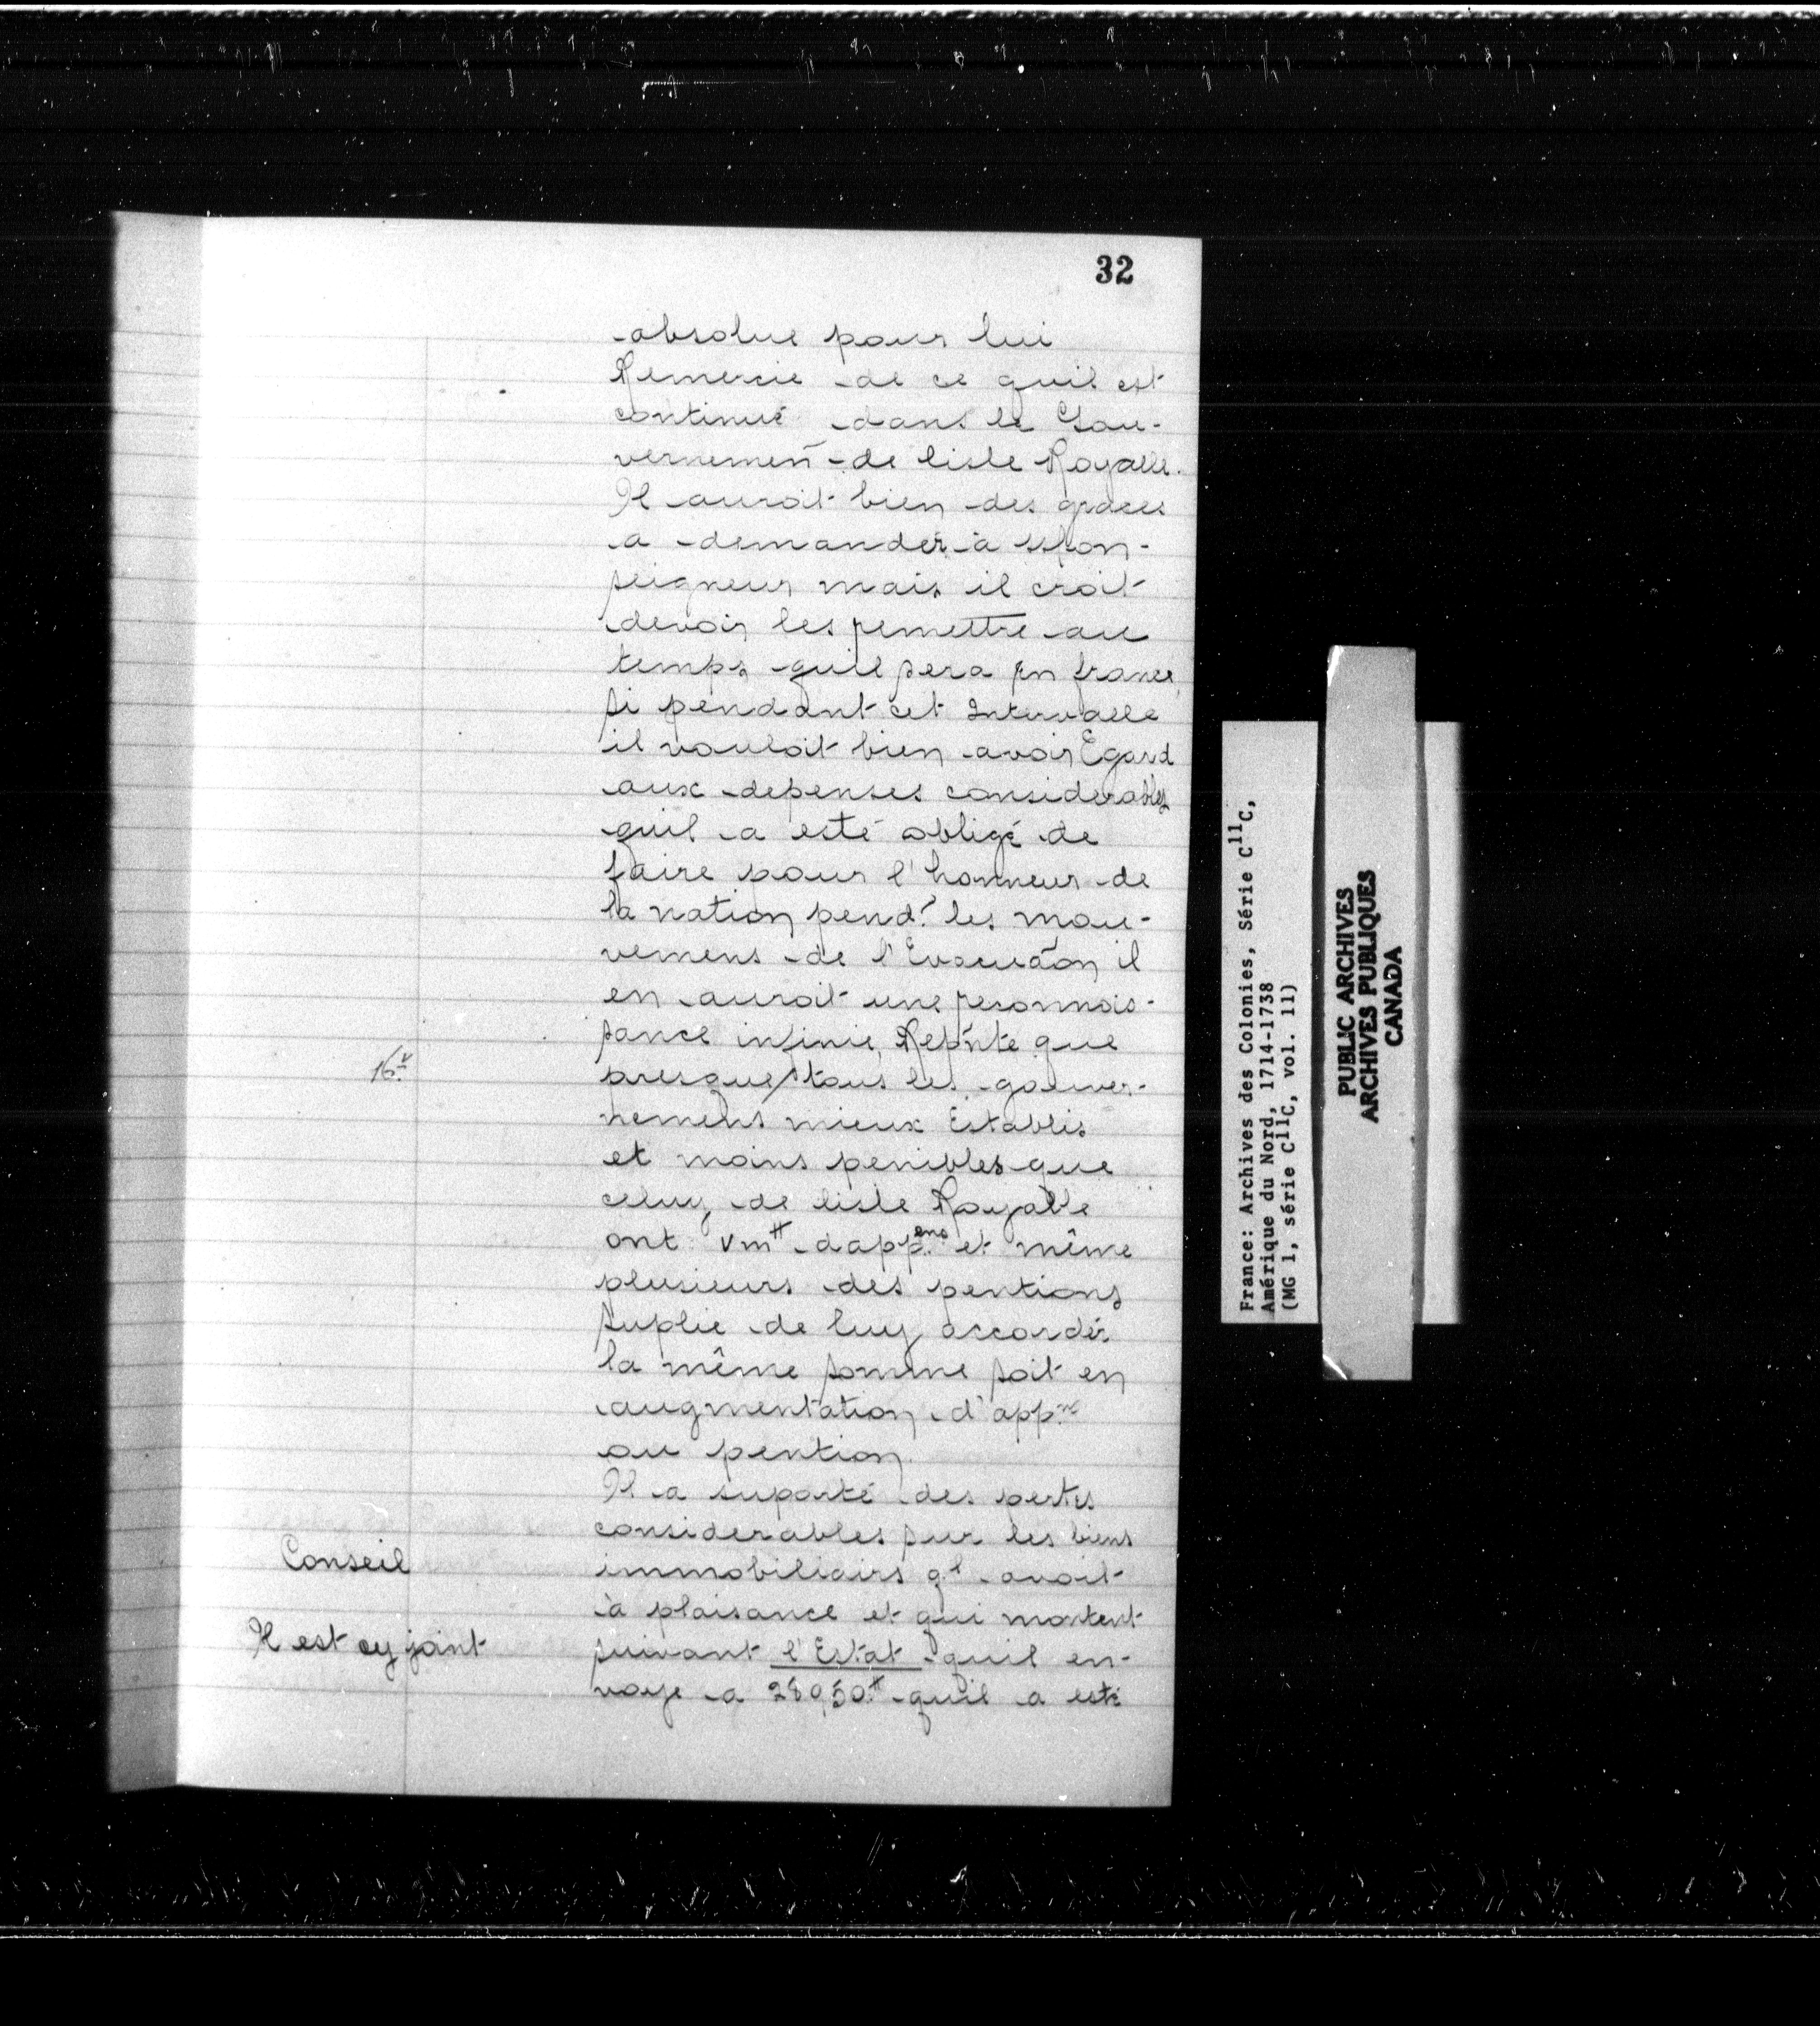 32
absolue pour lui
Remercie de ce quil est
continué dans le Gou-
vernemen̄ de lisle Royalle.
Il auroit bien des graces
a demander à Mon-
seigneur mais il croit
devoir les remettre au
temps quil sera En france,
si pendant cet Intervalle
il vouloit bien avoir Egard
aux depenses considerables
quil a esté obligé de
faire pour l'honneur de
la nation pend.t les mou-
vemens de l'Evacuãon il
en auroit une reconnois-
sance infinie, Repñte que
16.v
presque/tous les gouver-
nemens mieux Establis
et moins penibles que
celuy de lisle Royalle
ont vm# dapp.ens et même
plusieurs des pentions
suplie de luy accorder
la même somme soit en
augmentation d'app.ns
ou pention.
Il a suporté des pertes
considerables sur les biens
Conseil
immobiliairs q.l avoit
à plaisance et qui montent
Il est cy joint
suivant l'Estat quil en-
voye a 28050# quil a esté
France: Archives des Colonies, Série C11C,
Amérique du Nord, 1714-1738
(MG 1, série C11C, vol. 11)
PUBLIC ARCHIVES
ARCHIVES PUBLIQUES
CANADA